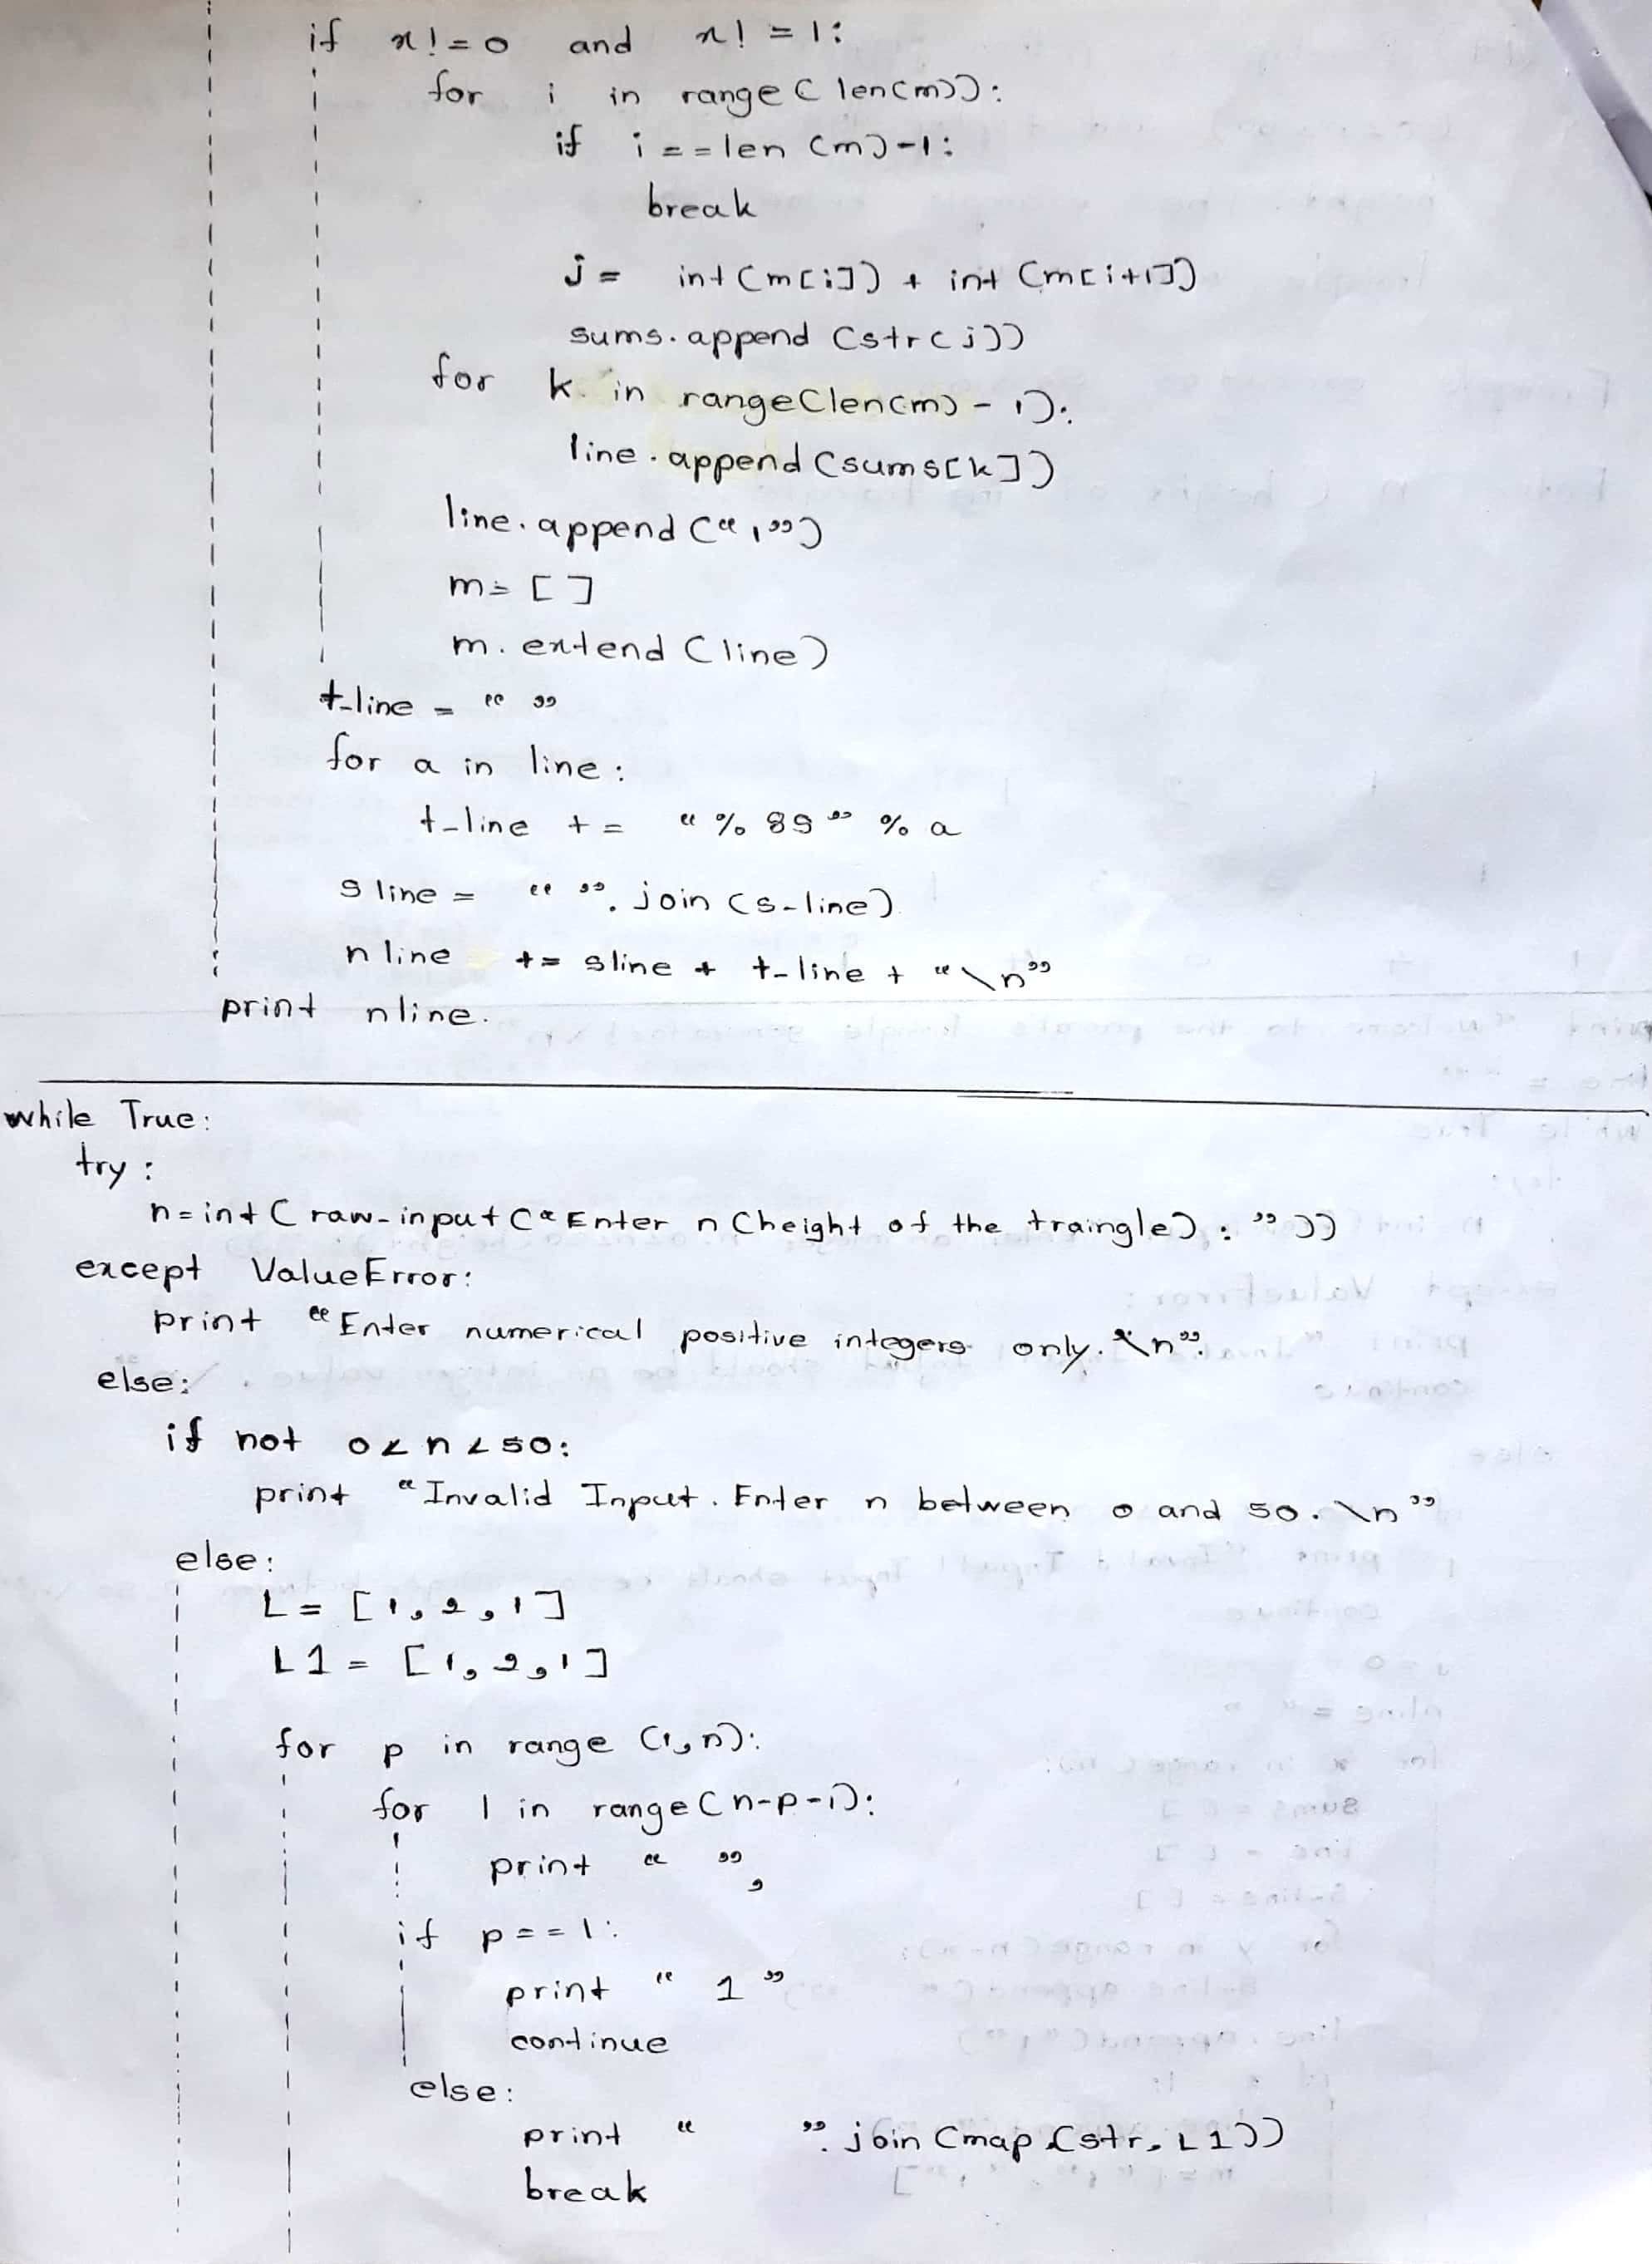 if x!=0 and x!=1:
for i in range(len(m)):
if i==len(m)-1:
break
j= int(m[i]) + int(m[i+1])
sums.append(str(j))
for k in range(len(m)-1):
line.append(sums[k])
line.append("1")
m=[]
m.extend(line)
t_line = " "
for a in line:
t_line += "%8s" % a
sline = " ".join(s_line)
nline += sline + t_line + "\n"
print nline.
while True:
try:
n=int(raw_input("Enter n (height of the traingle): "))
except ValueError:
print "Enter numerical positive integers only. \n".
else:
if not 0<n<50:
print "Invalid Input. Enter n between 0 and 50. \n"
else:
L=[1,2,1]
L1=[1,2,1]
for p in range(1,n):
for l in range(n-p-1):
print " ",
if p==1:
print " 1 "
continue
else:
print "     ".join(map(str,L1))
break